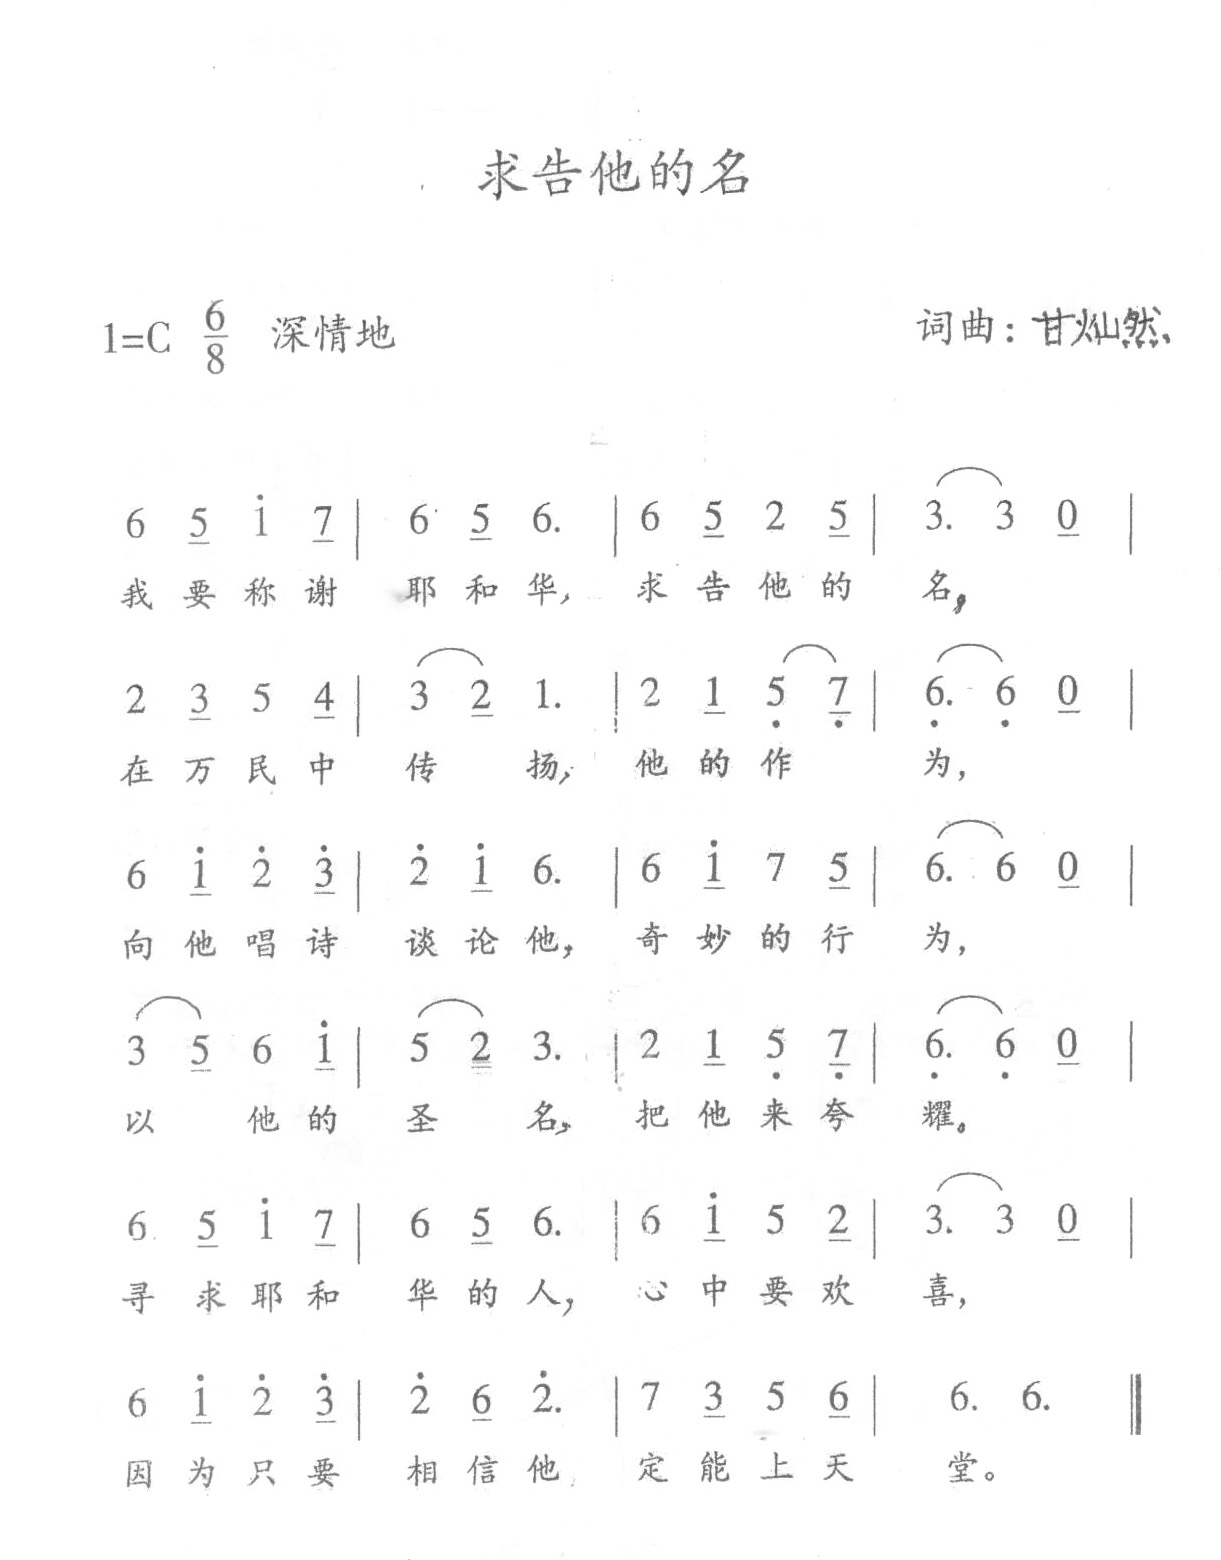 求告他的名
1=C 6/8 深情地 词曲：甘灿然
6 5 1̇ 7 | 6 5 6. | 6 5 2 5 | 3. 3 0 |
我要称谢 耶和华, 求告他的 名,
2 3 5 4 | 3 2 1. | 2 1 5̣ 7̣ | 6̣. 6̣ 0 |
在万民中 传 扬, 他的作 为,
6 1̇ 2̇ 3̇ | 2̇ 1̇ 6. | 6 1̇ 7 5 | 6. 6 0 |
向他唱诗 谈论他, 奇妙的行 为,
3 5 6 1̇ | 5 2 3. | 2 1 5̣ 7̣ | 6̣. 6̣ 0 |
以 他的 圣 名, 把他来夸 耀。
6 5 1̇ 7 | 6 5 6. | 6 1̇ 5 2 | 3. 3 0 |
寻求耶和 华的人, 心中要欢 喜,
6 1̇ 2̇ 3̇ | 2̇ 6 2̇. | 7 3 5 6 | 6. 6. ‖
因为只要 相信他, 定能上天 堂。